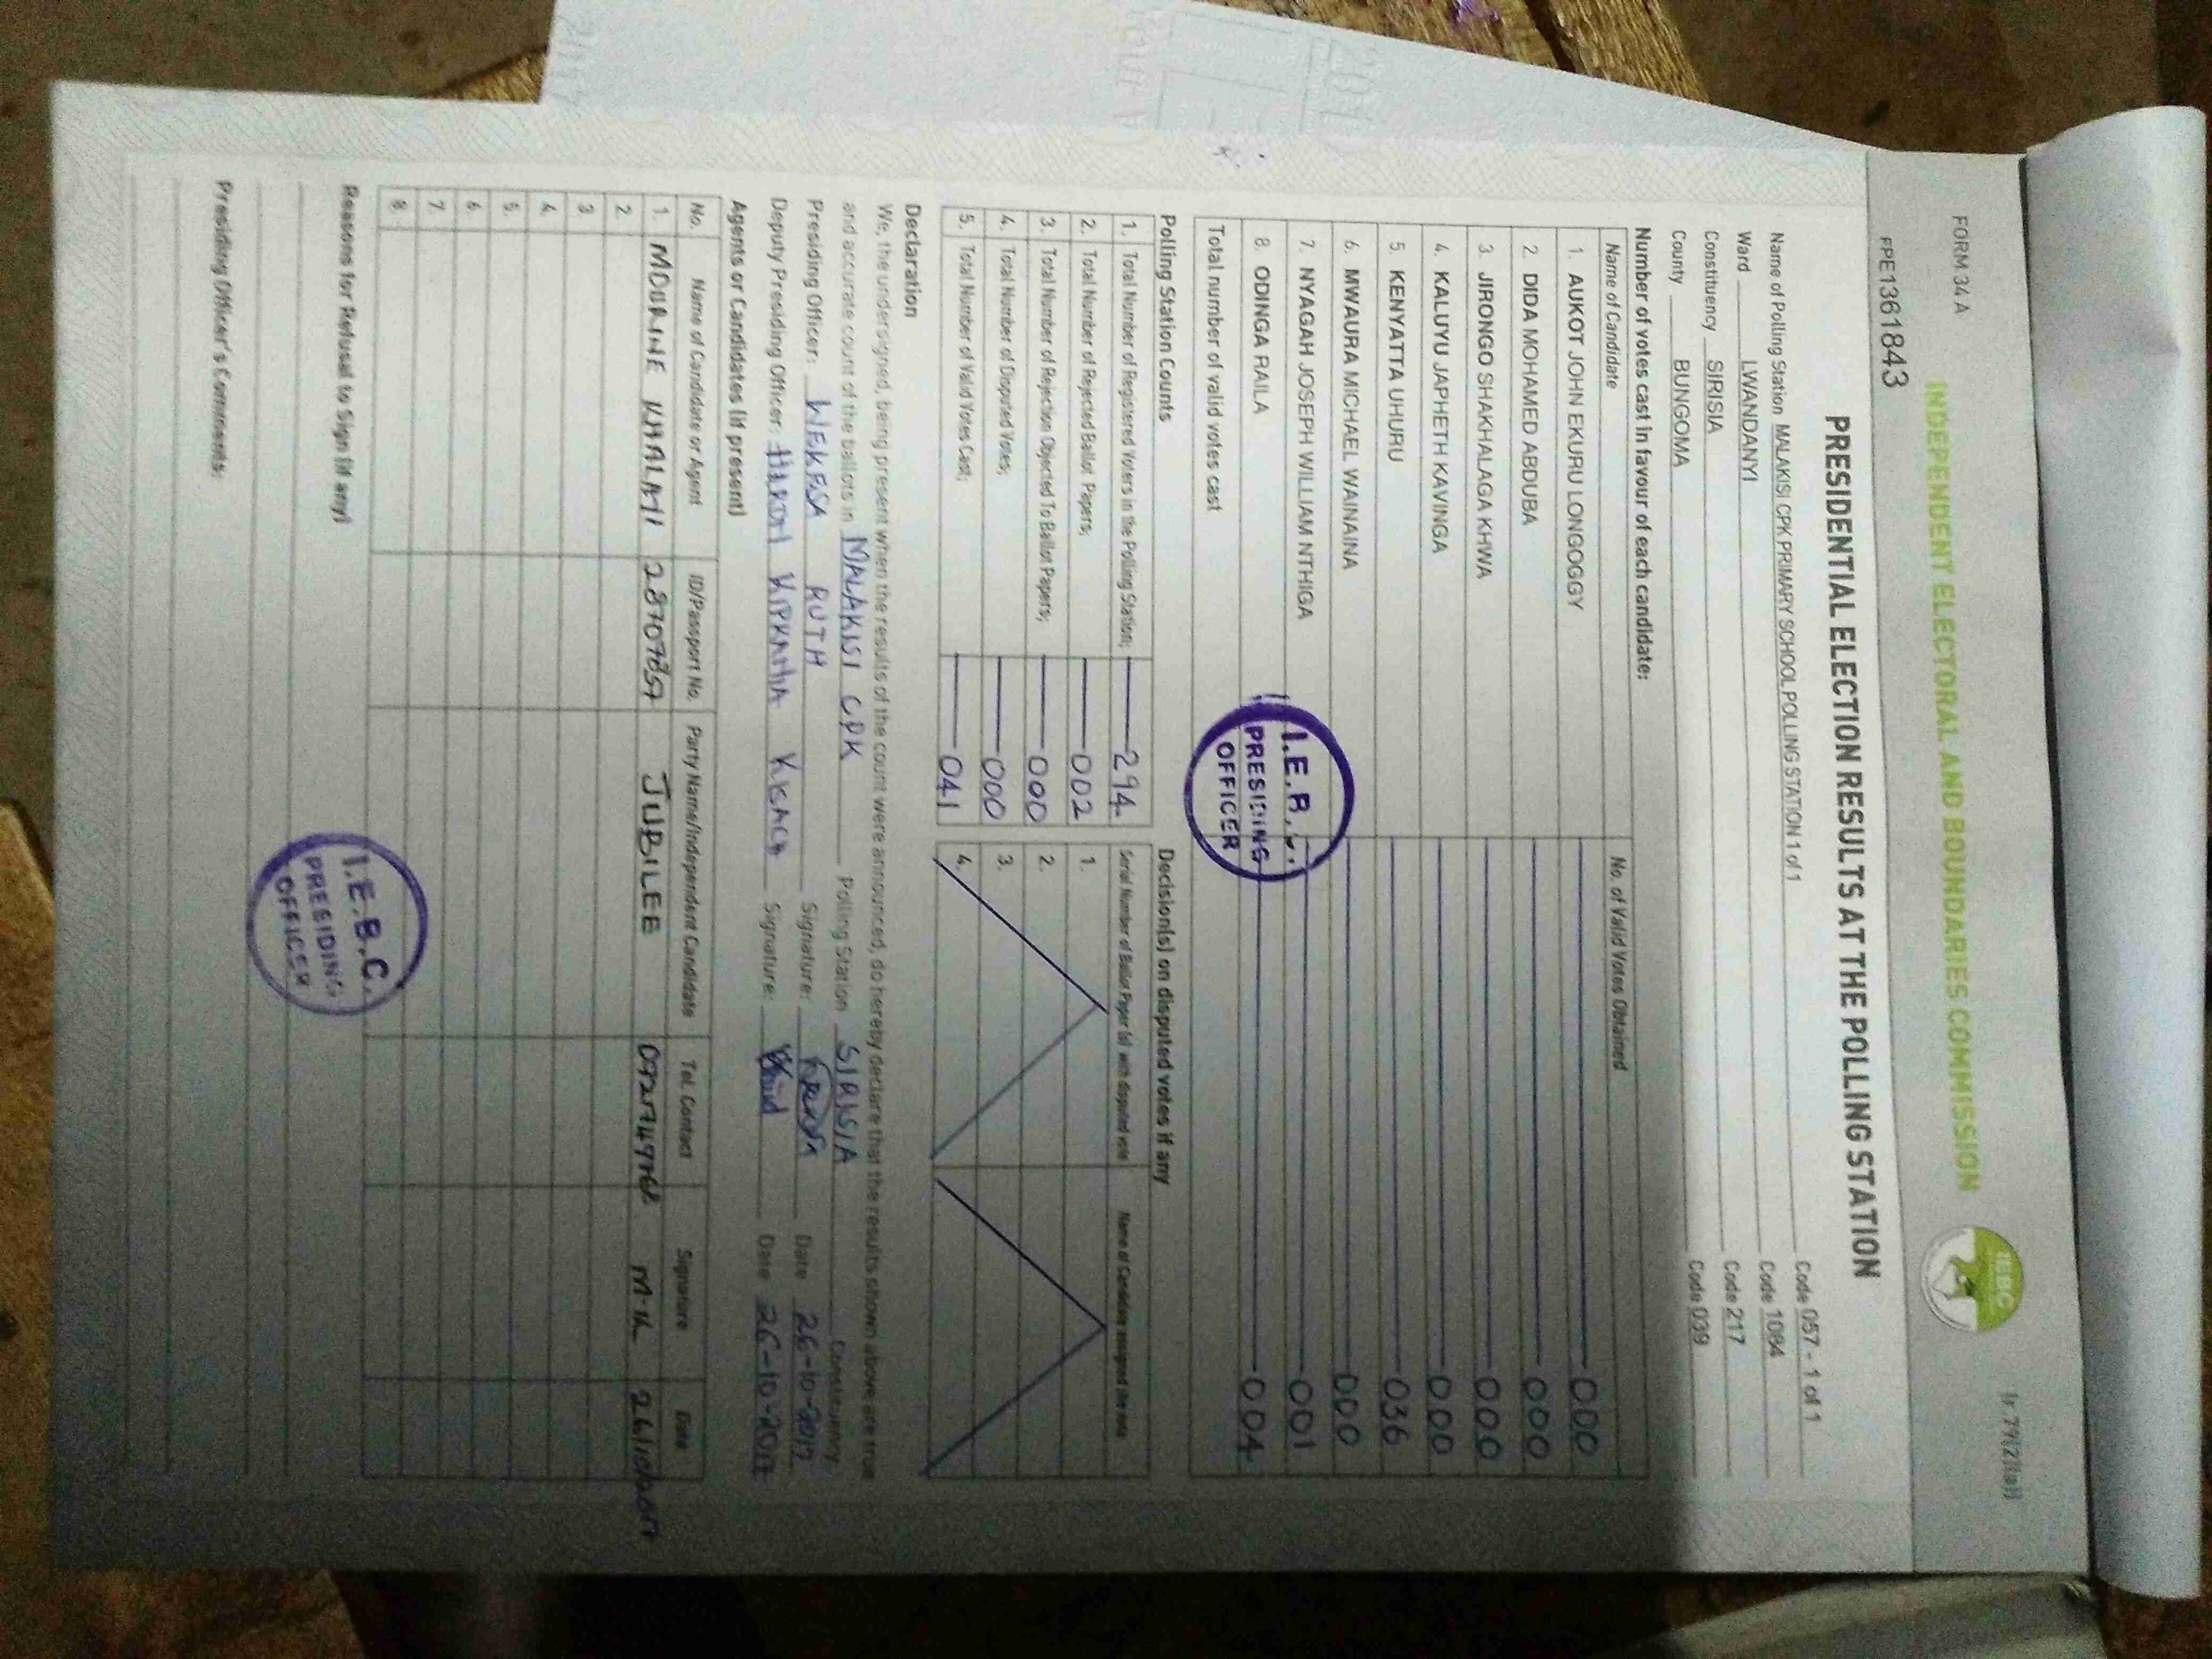 FORM 34 A
(r.79(2)(a))
INDEPENDENT ELECTORAL AND BOUNDARIES COMMISSION
IEBC
PRESIDENTIAL ELECTION RESULTS AT THE POLLING STATION
Name of Polling Station MALAKISI CPK PRIMARY SCHOOL POLLING STATION 1 of 1 Code 057 - 1 of 1
Ward LWANDANYI Code 1084
Constituency SIRISIA Code 217
County BUNGOMA Code 039
Number of votes cast in favour of each candidate:
Name of Candidate No. of Valid Votes Obtained
1. AUKOT JOHN EKURU LONGOGGY 000
2. DIDA MOHAMED ABDUBA 000
3. JIRONGO SHAKHALAGA KHWA 000
4. KALUYU JAPHETH KAVINGA 000
5. KENYATTA UHURU 036
6. MWAURA MICHAEL WAINAINA 000
7. NYAGAH JOSEPH WILLIAM NTHIGA 001
8. ODINGA RAILA 004
Total number of valid votes cast
PRESIDING
OFFICER
Polling Station Counts
1. Total Number of Registered Voters in the Polling Station; 294
2. Total Number of Rejected Ballot Papers; 002
3. Total Number of Rejection Objected To Ballot Papers; 000
4. Total Number of Disputed Votes; 000
5. Total Number of Valid Votes Cast; 041
Decision(s) on disputed votes if any
Serial Number of Ballot Paper (s) with disputed vote Name of Candidate assigned the vote
1.
2.
3.
4.
Declaration
We, the undersigned, being present when the results of the count were announced, do hereby declare that the results shown above are true
and accurate count of the ballots in MALAKISI CPK Polling Station SIRISIA Constituency
Presiding Officer: WEKESA RUTH Signature: Date 26-10-2017
Deputy Presiding Officer: Signature: Date 26-10-2017
Agents or Candidates (if present)
No. Name of Candidate or Agent ID/Passport No. Party Name/Independent Candidate Tel. Contact Signature Date
1. JUBILEE M.K
2.
3.
4.
5.
6.
7.
8.
Reasons for Refusal to Sign (if any)
I.E.B.C.
PRESIDING
OFFICER
Presiding Officer's Comments: